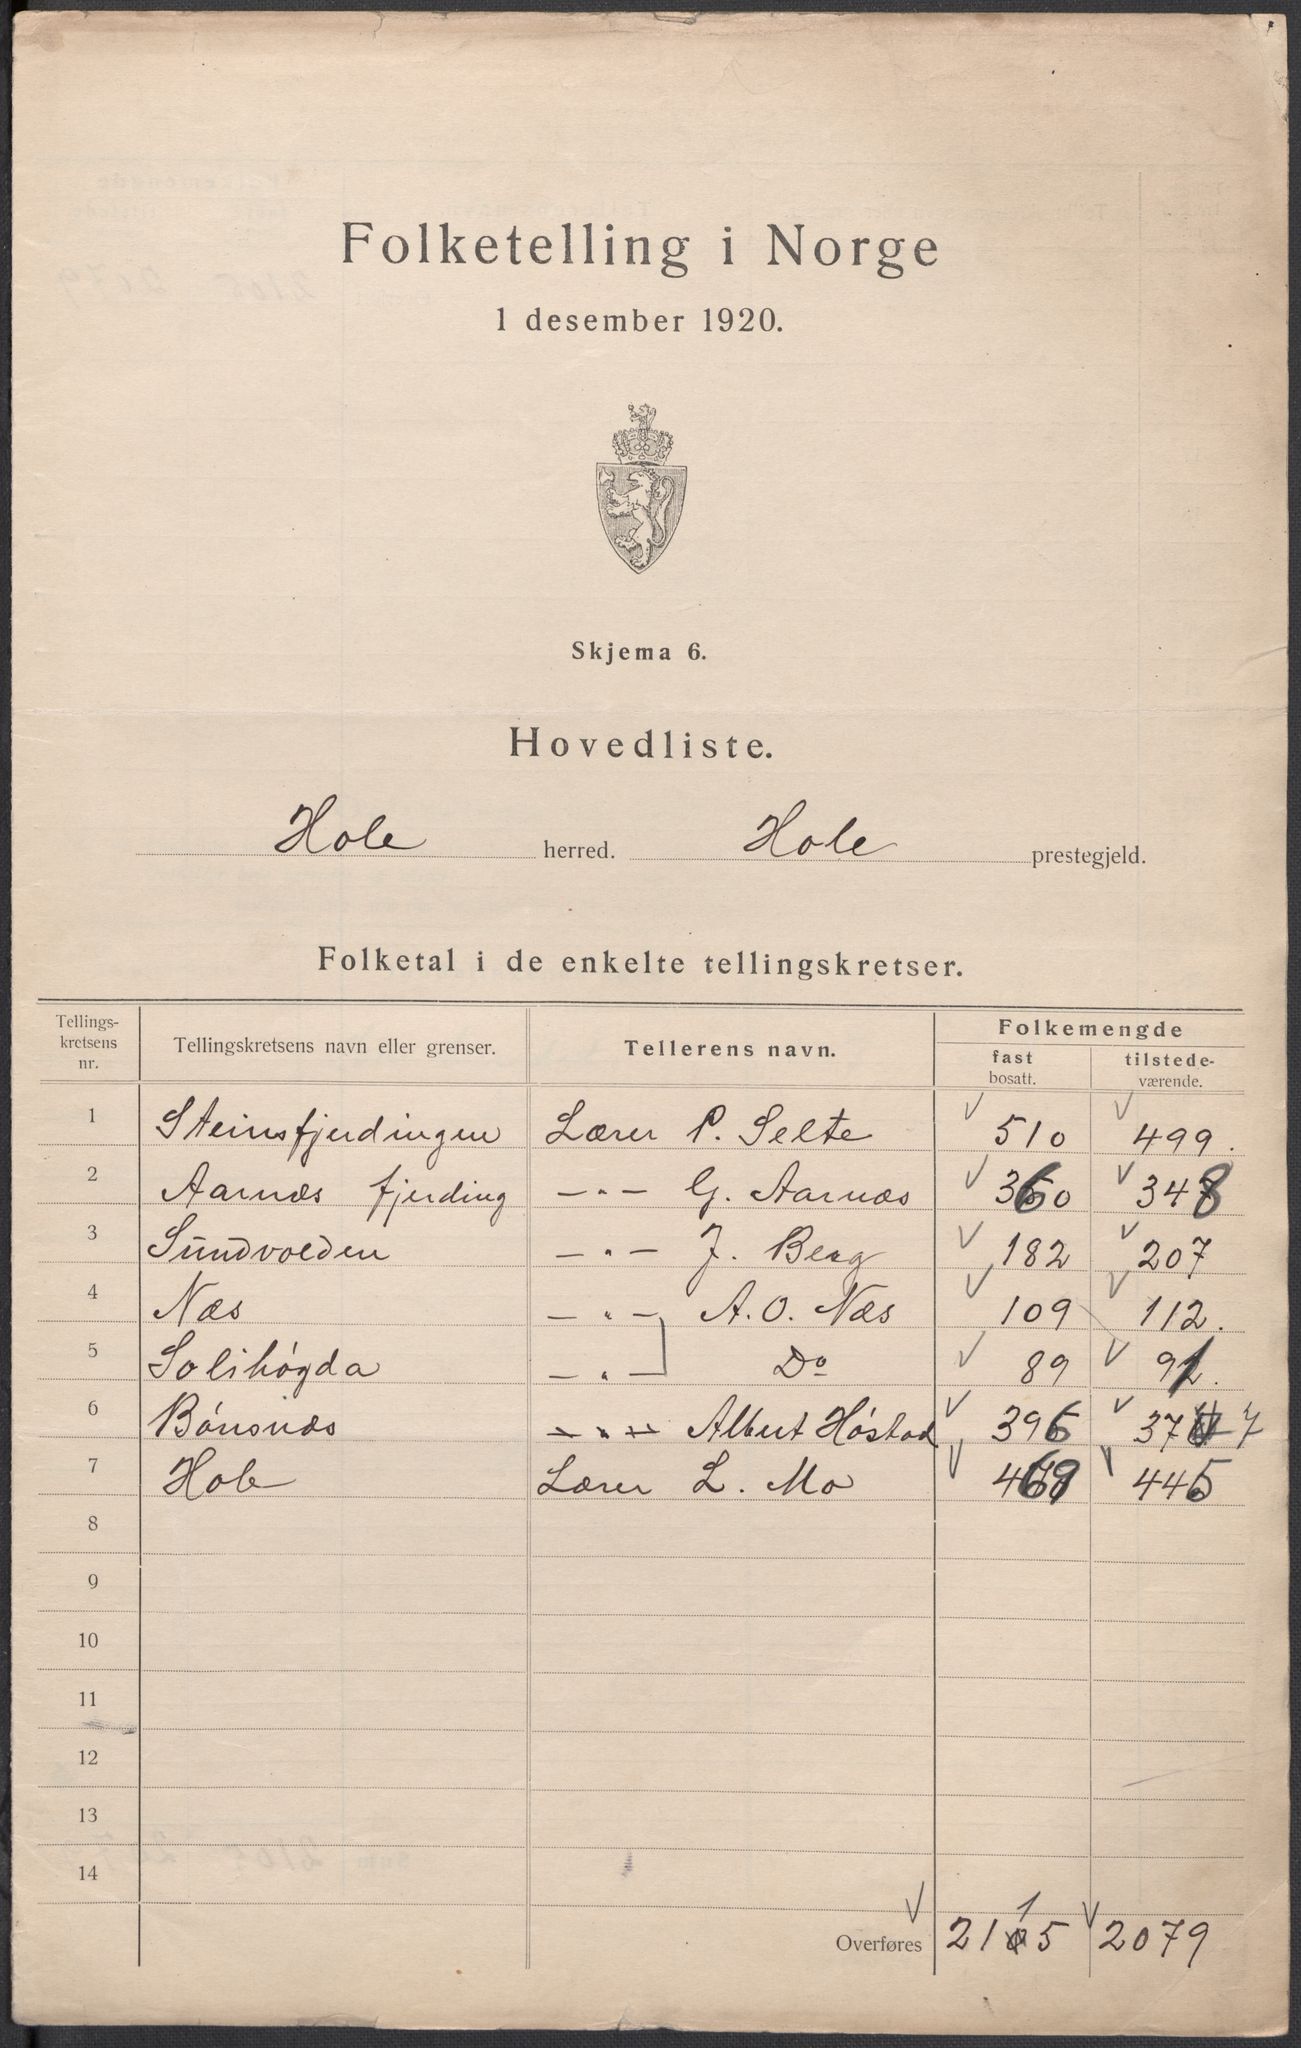 Folketelling i Norge
1 desember 1920.
Skjema 6.
Hovedliste.
Hole herred. Hole prestegjeld.
Folketal i de enkelte tellingskretser.
Tellings-
kretsens
nr.
Tellingskretsens navn eller grenser.
Tellerens navn.
Folkemengde
fast
bosatt.
tilstede-
værende.
1 Steinsfjerdingen Lærer P. Selte 510 499.
2 Aarnæs fjerding — " — G. Aarnæs 360 348
3 Sundvolden — " — J. Berg 182 207
4 Næs — " — A. O. Næs 109 112.
5 Solihøgda — " — Do 89 91.
6 Bönsnæs — " — Albert Høstad 396 377
7 Hole Lærer L. Mo 469 445
8
9
10
11
12
13
14
Overføres 2115 2079